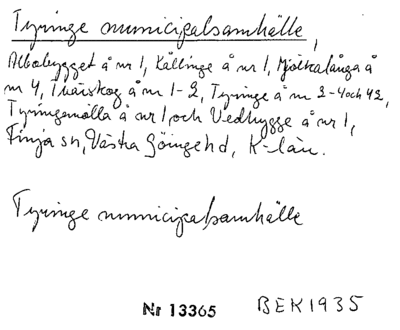 Tyringe municipalsamhälle,
Albobygget å nr 1, Källinge å nr 1, Mjölkalånga å
nr 4, Tvärskog å nr 1-2, Tyringe å nr 2-4 och 42,
Tyringemölla å nr 1, och Vedhygge å nr 1,
Finja sn, Västra Göingehd, K-län.
Tyringe municipalsamhälle
Nr 13365 BEK1935